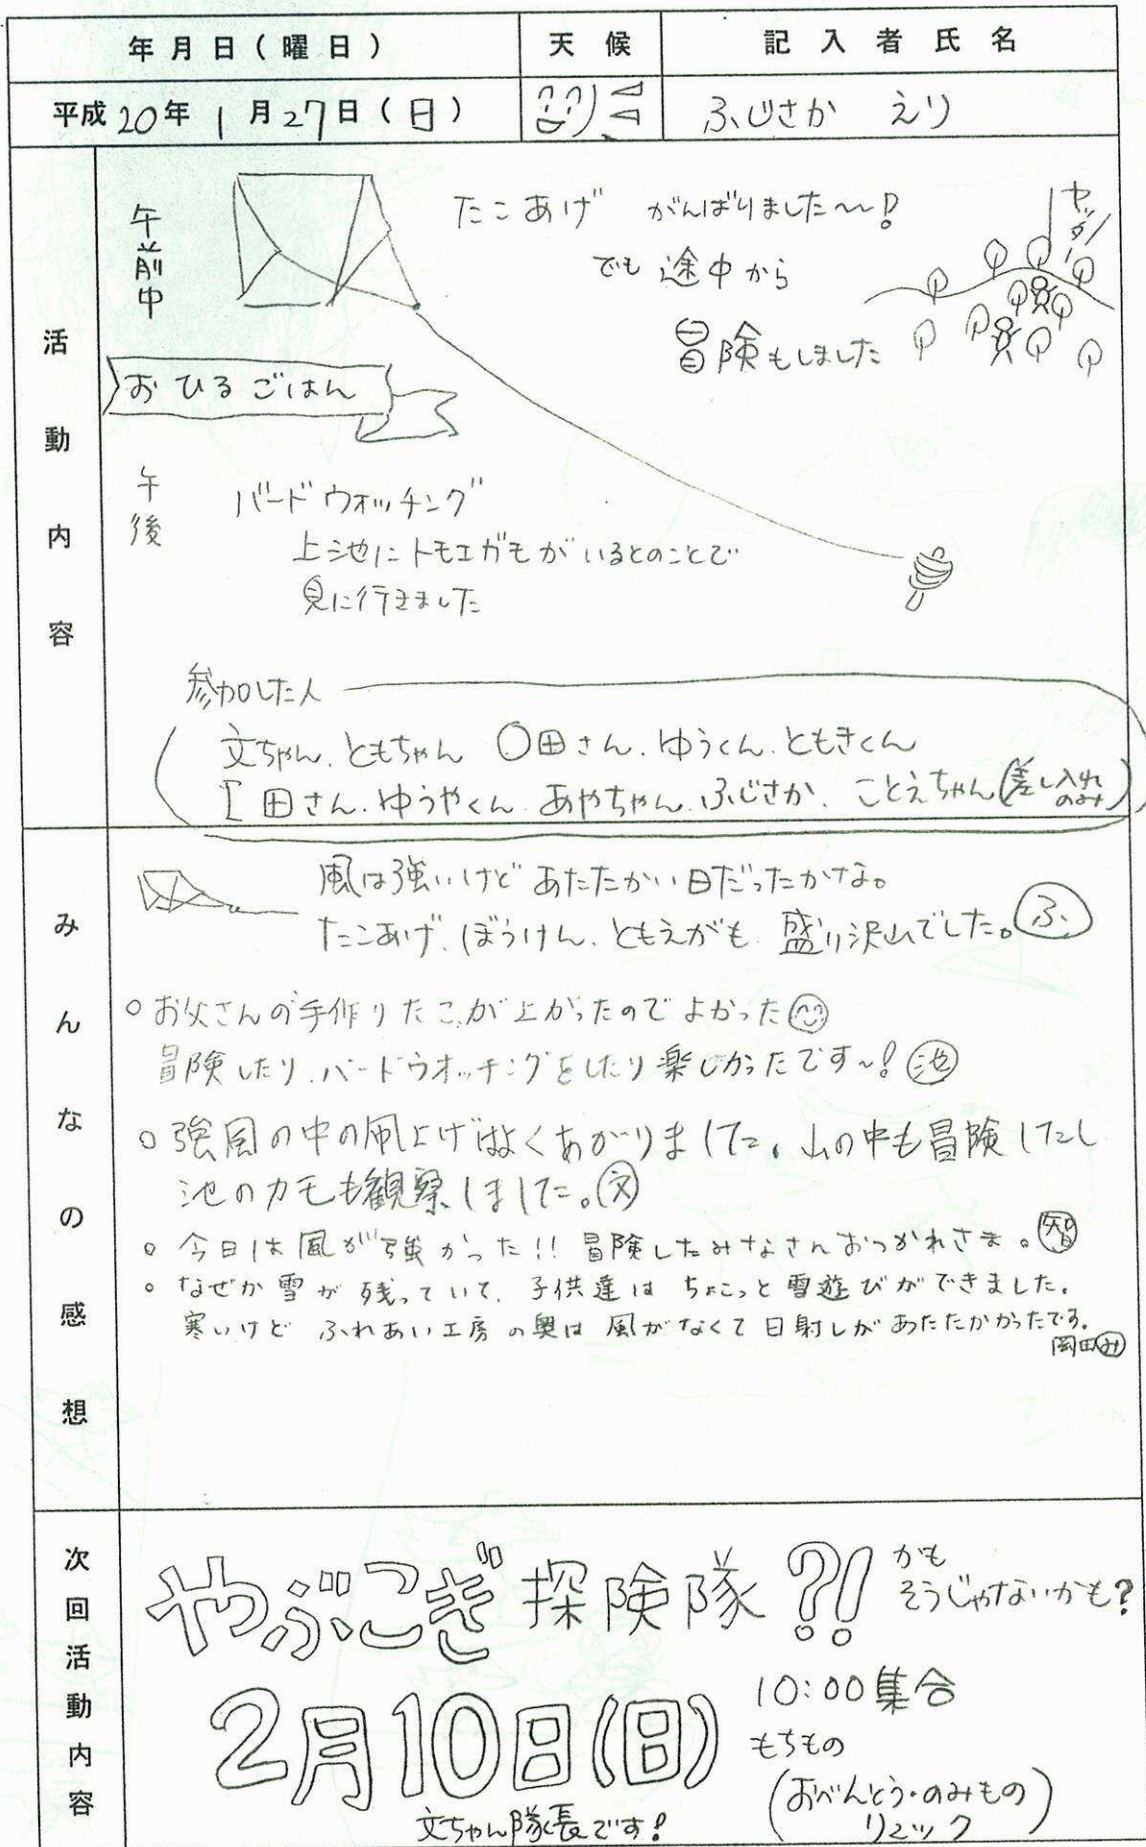 年月日(曜日)
天候
記入者氏名
平成20年1月27日(日)
ふじさか えり
活動内容
午前中
たこあげ がんばりました〜!
でも途中から
冒険もしました
ヤッター
おひるごはん
午後
バードウォッチング
上池にトモエガモがいるとのことで
見に行きました
参加した人
文ちゃん、ともちゃん 〇田さん、ゆうくん、ともきくん
田さん、ゆうやくん、あやちゃん、ふじさか、ことえちゃん(差し入れのみ)
みんなの感想
風は強いけどあたたかい日だったかな。
たこあげ、ぼうけん、ともえがも、盛り沢山でした。ふ
○お父さんの手作りたこが上がったのでよかった
冒険したり、バードウオッチングをしたり楽しかったです〜!池
○強風の中の凧上げはよくあがりました。山の中も冒険したし
池のカモも観察しました。文
○今日は風が強かった!!冒険したみなさんおつかれさま。智
○なぜか雪が残っていて、子供達はちょこっと雪遊びができました。
寒いけどふれあい工房の奥は風がなくて日射しがあたたかかったです。
岡田み
次回活動内容
やぶこぎ探険隊?!
かも
そうじゃないかも?
2月10日(日)
10:00集合
もちもの
(おべんとう・のみもの
リュック)
文ちゃん隊長です!